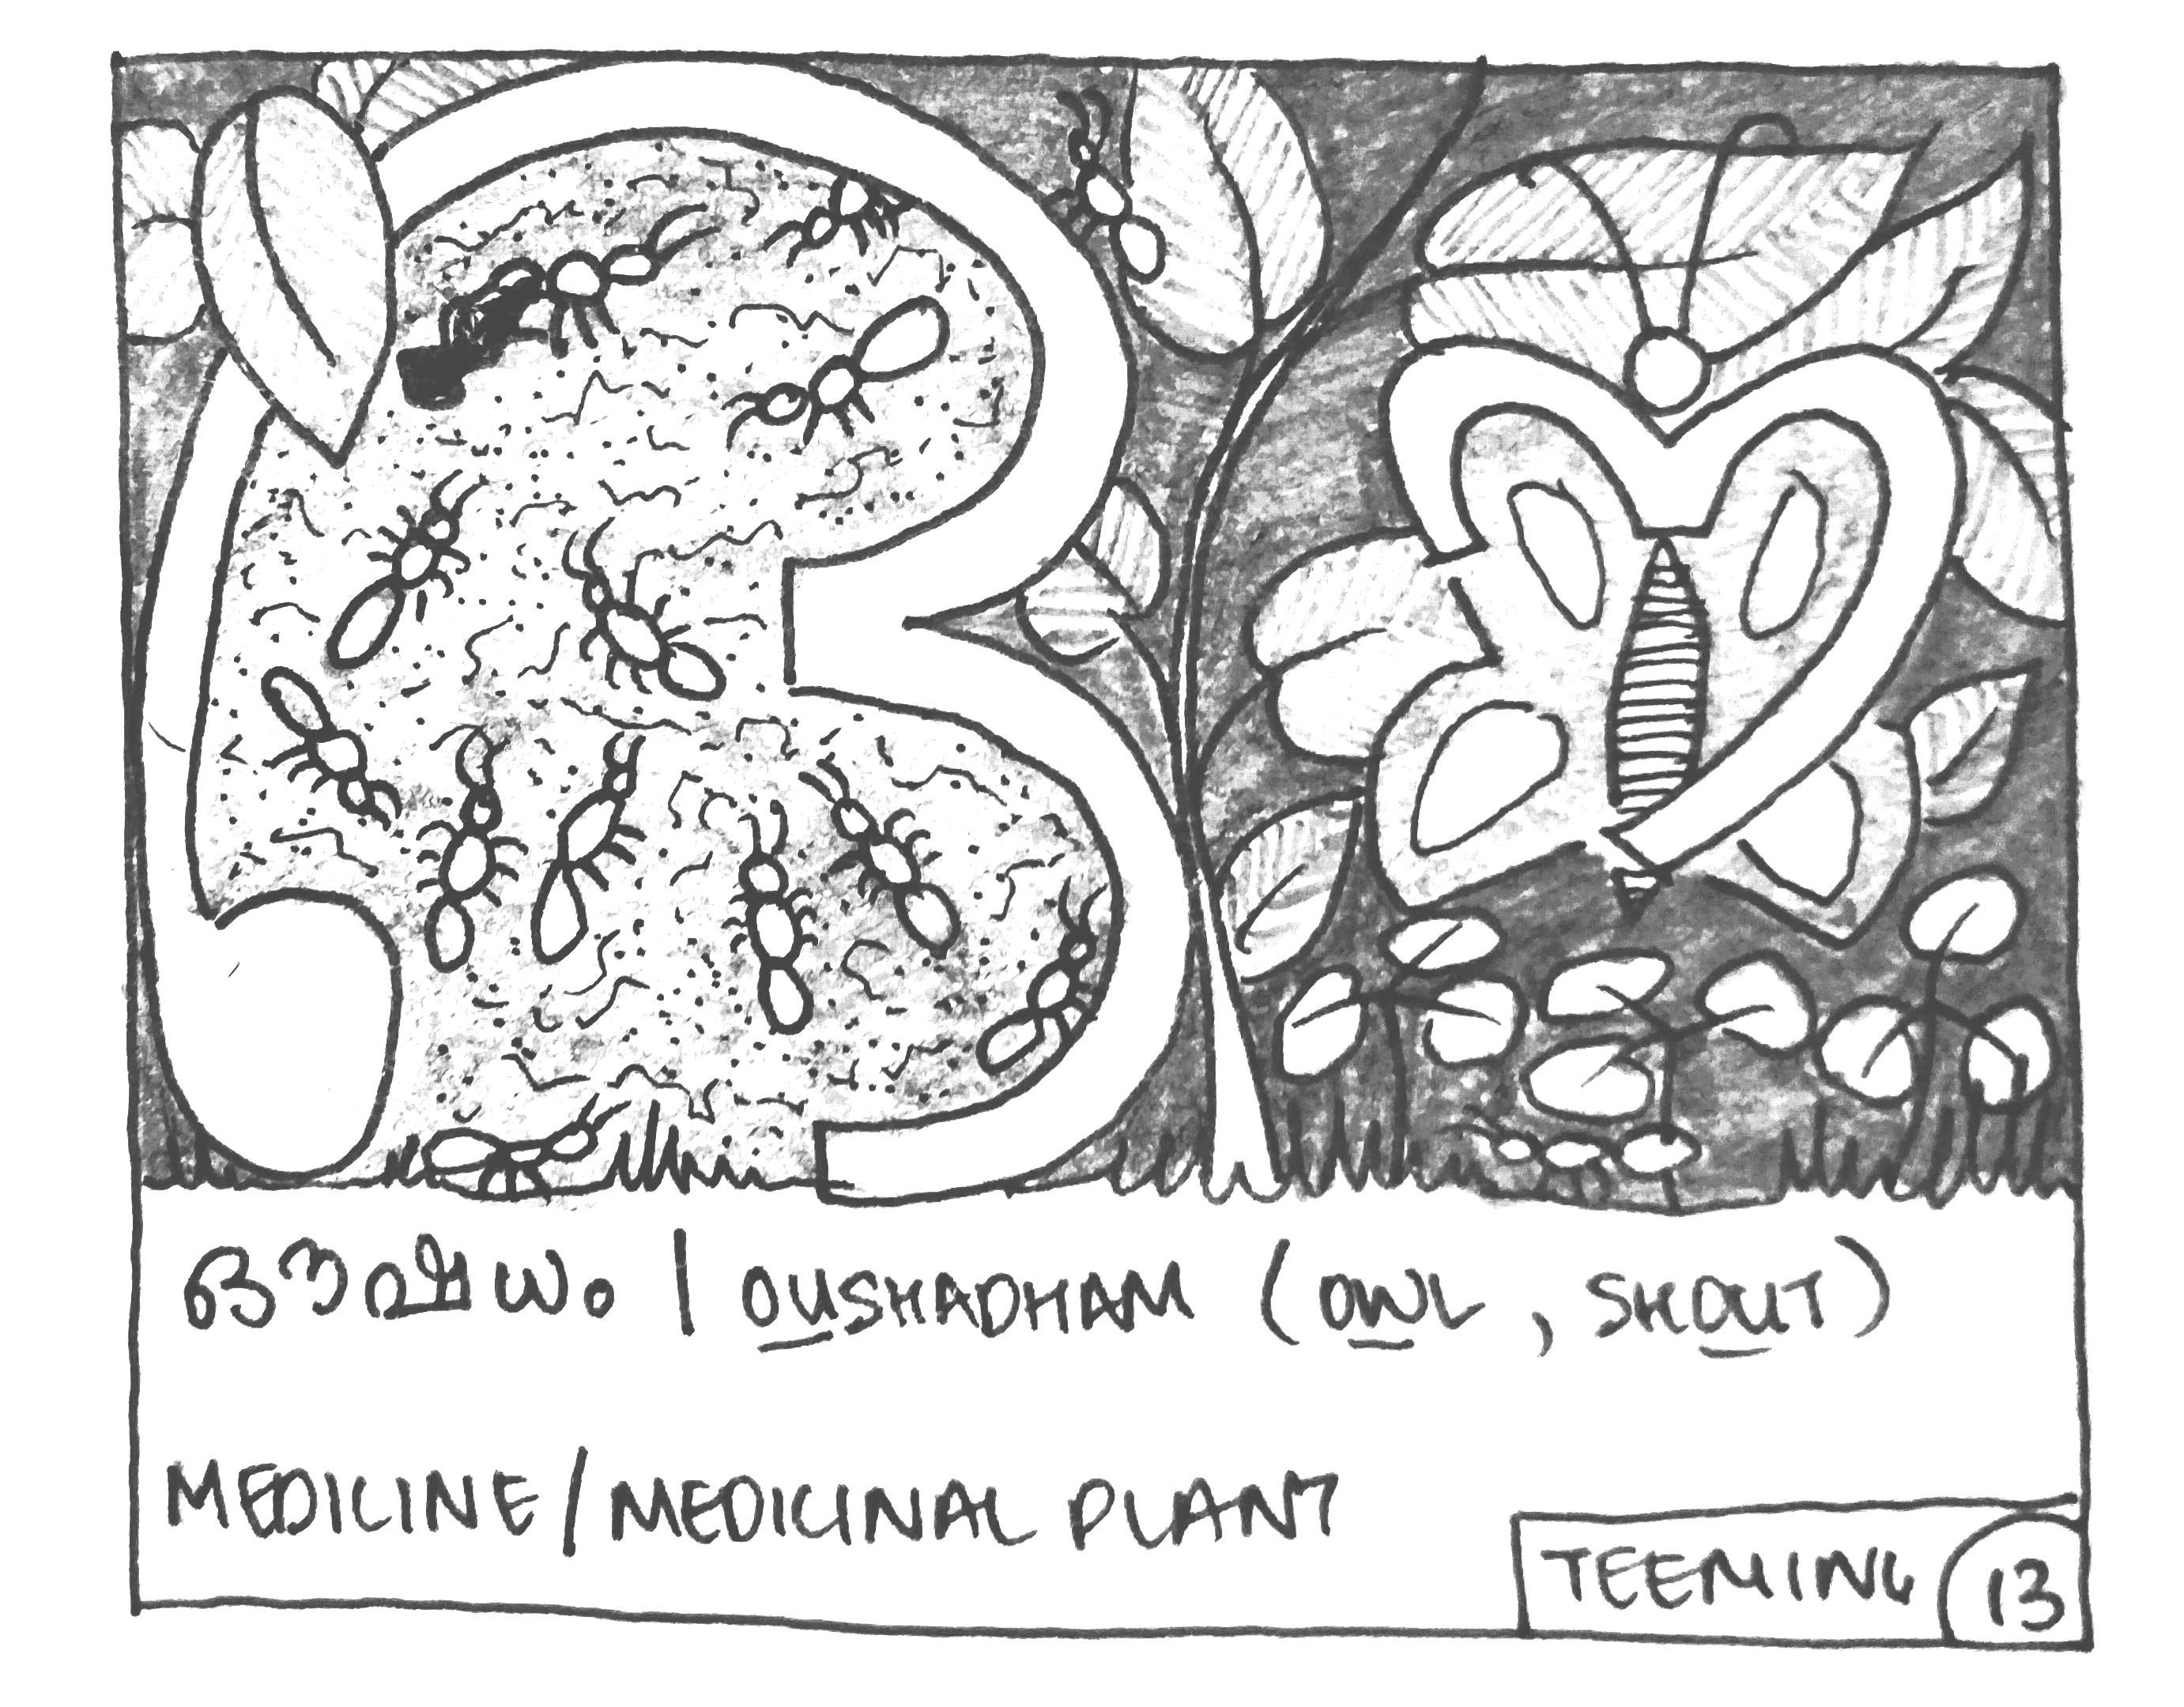 ഔ
ഔഷധം / OUSHADHAM (OWL, SHOUT)
MEDICINE/MEDICINAL PLANT
TEEMING 13